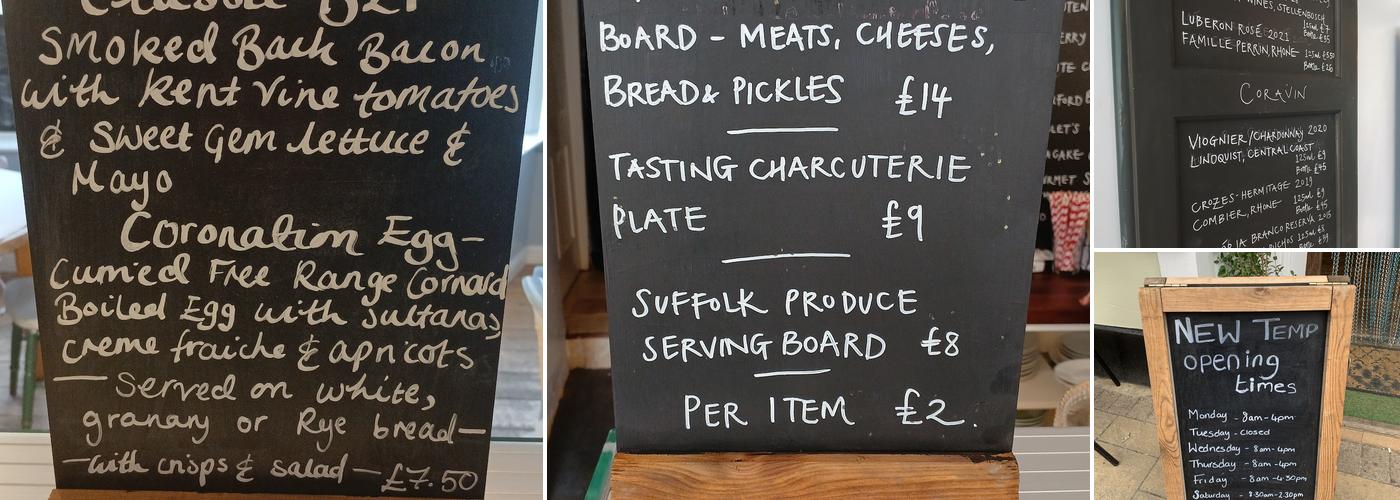 Classic BLT
Smoked Back Bacon
with Kent Vine tomatoes
& Sweet Gem lettuce &
Mayo
Coronation Egg-
Curried Free Range Cornard
Boiled Egg with sultanas,
creme fraiche & apricots
— Served on white,
granary or Rye bread—
—with crisps & salad— £7.50
BOARD - MEATS, CHEESES,
BREAD & PICKLES £14
TASTING CHARCUTERIE
PLATE £9
SUFFOLK PRODUCE
SERVING BOARD £8
PER ITEM £2.
WINES, STELLENBOSCH
LUBERON ROSÉ 2021 125ml £7
Bottle £35
FAMILLE PERRIN, RHONE
Bottle £26
CORAVIN
VIOGNIER/CHARDONNAY 2020
LINDQUIST, CENTRAL COAST
125ml £9
Bottle £45
CROZES-HERMITAGE 2019
COMBIER, RHONE 125ml £9
Bottle £45
BRANCO RESERVA 2015
125ml £8
NEW TEMP
opening
times
Monday - 8am-4pm
Tuesday - closed
Wednesday - 8am-4pm
Thursday - 8am-4pm
Friday - 8am-4:30pm
Saturday - 8:30am-2:30pm